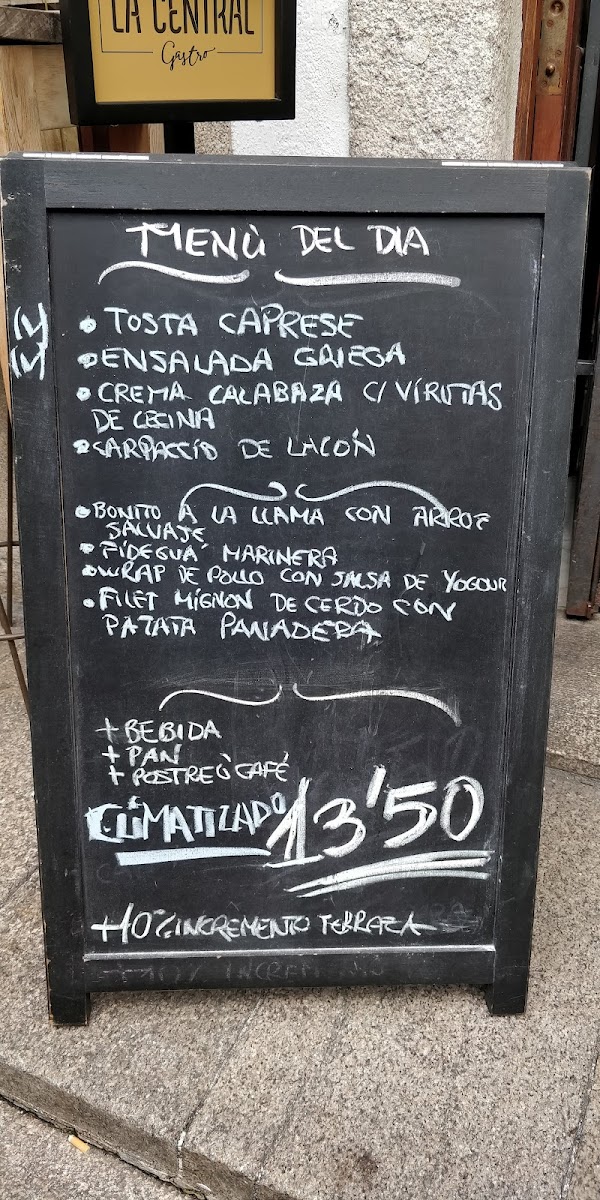 LA CENTRAL
Gastro
MENÙ DEL DIA
• TOSTA CAPRESE
• ENSALADA GRIEGA
• CREMA CALABAZA C/ VIRUTAS
DE CECINA
• CARPACCIO DE LACÓN
• BONITO A LA LLAMA CON ARROZ
SALVAJE
• FIDEGUÁ MARINERA
• WRAP DE POLLO CON SALSA DE YOGOUR
• FILET MIGNON DE CERDO CON
PATATA PANADERA
+ BEBIDA
+ PAN
+ POSTRE Ò CAFÉ
CLIMATIZADO 13'50
+10% INCREMENTO TERRAZA